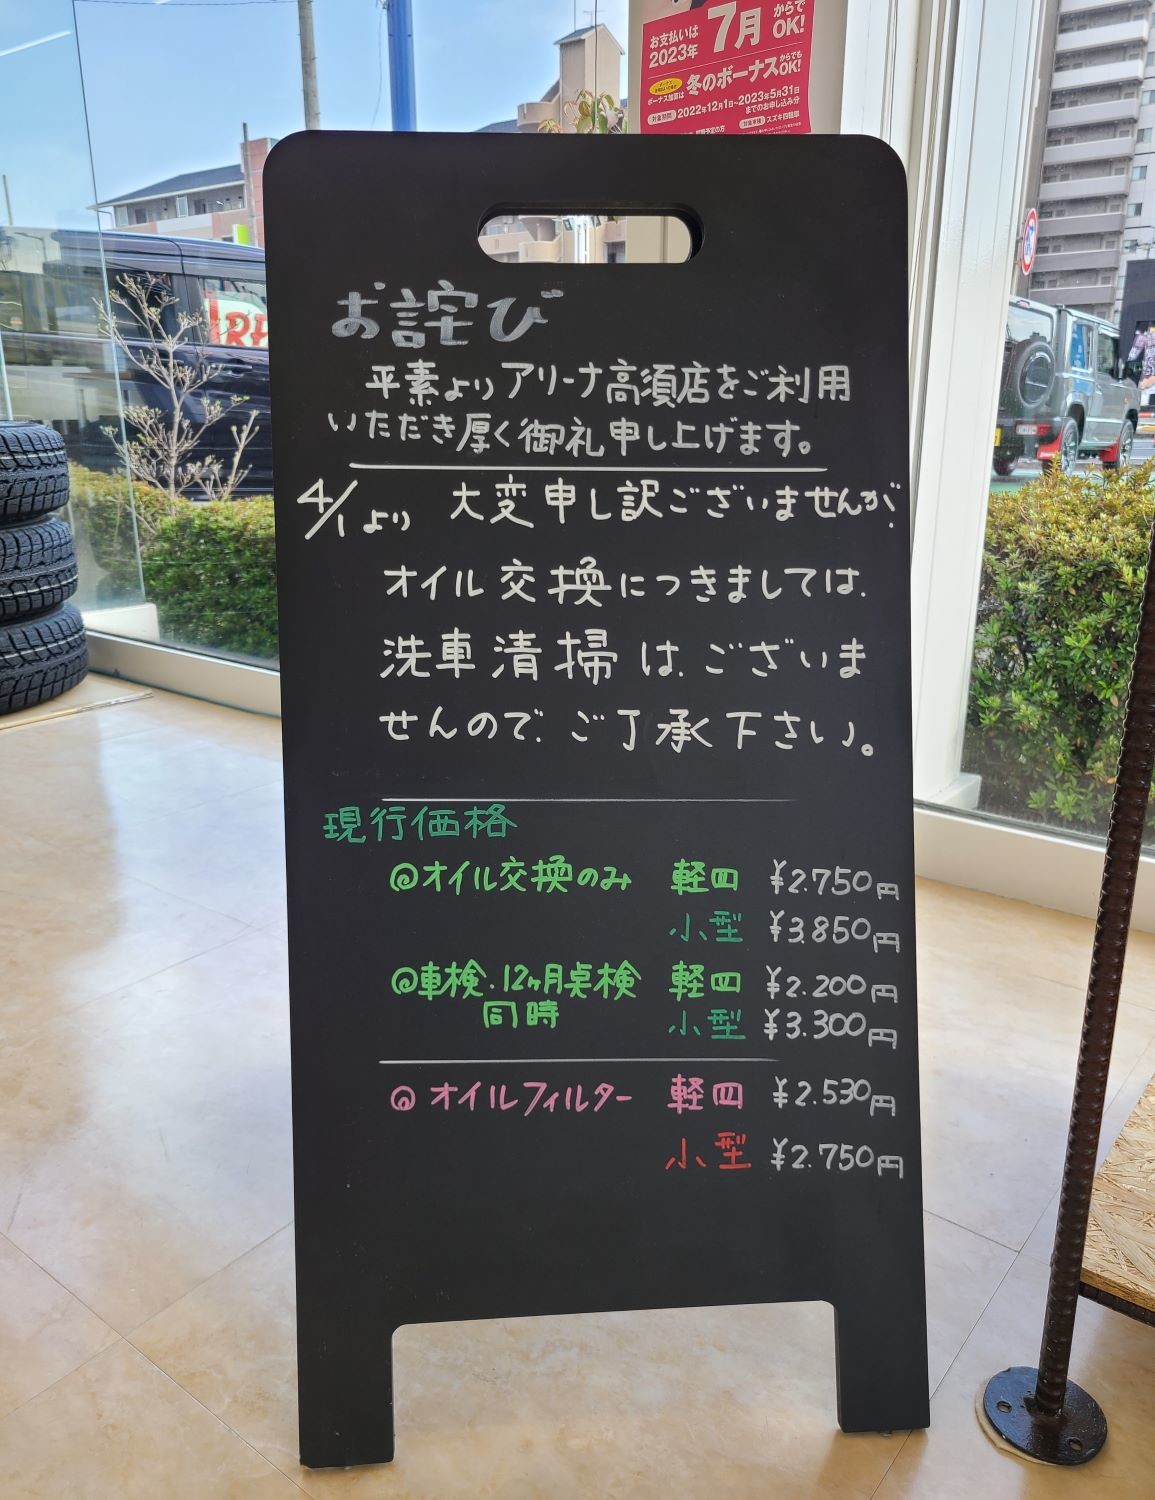 お支払いは
2023年 7月 からで OK!
冬のボーナス からでも OK!
ボーナス加算は
対象期間 2022年12月1日~2023年5月31日
までのお申し込み分
対象車種 スズキ四輪車
お詫び
平素よりアリーナ高須店をご利用
いただき厚く御礼申し上げます。
4/1より 大変申し訳ございませんが、
オイル交換につきましては、
洗車清掃は、ございま
せんので、ご了承下さい。
現行価格
@オイル交換のみ 軽四 ¥2.750円
小型 ¥3.850円
@車検.12ヶ月点検 軽四 ¥2.200円
同時 小型 ¥3.300円
@オイルフィルター 軽四 ¥2.530円
小型 ¥2.750円